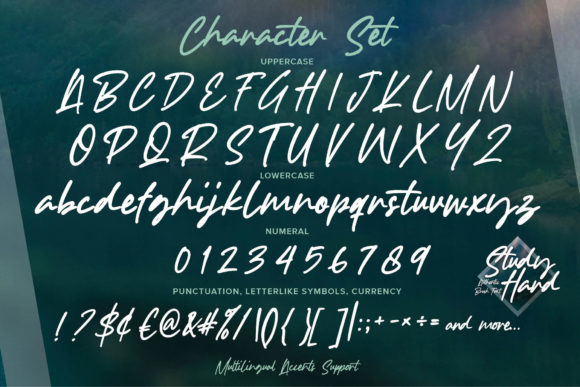 Character Set
UPPERCASE
ABCDEFGHIJKLMN
OPQRSTUVWXYZ
LOWERCASE
abcdefghijklmnopqrstuvwxyz
NUMERAL
0123456789
Study
Hard
Authentic
Brush Font
PUNCTUATION, LETTERLIKE SYMBOLS, CURRENCY
!?$¢€@&#%/\(){}[]|:;+-×÷= and more...
Multilingual Accents Support